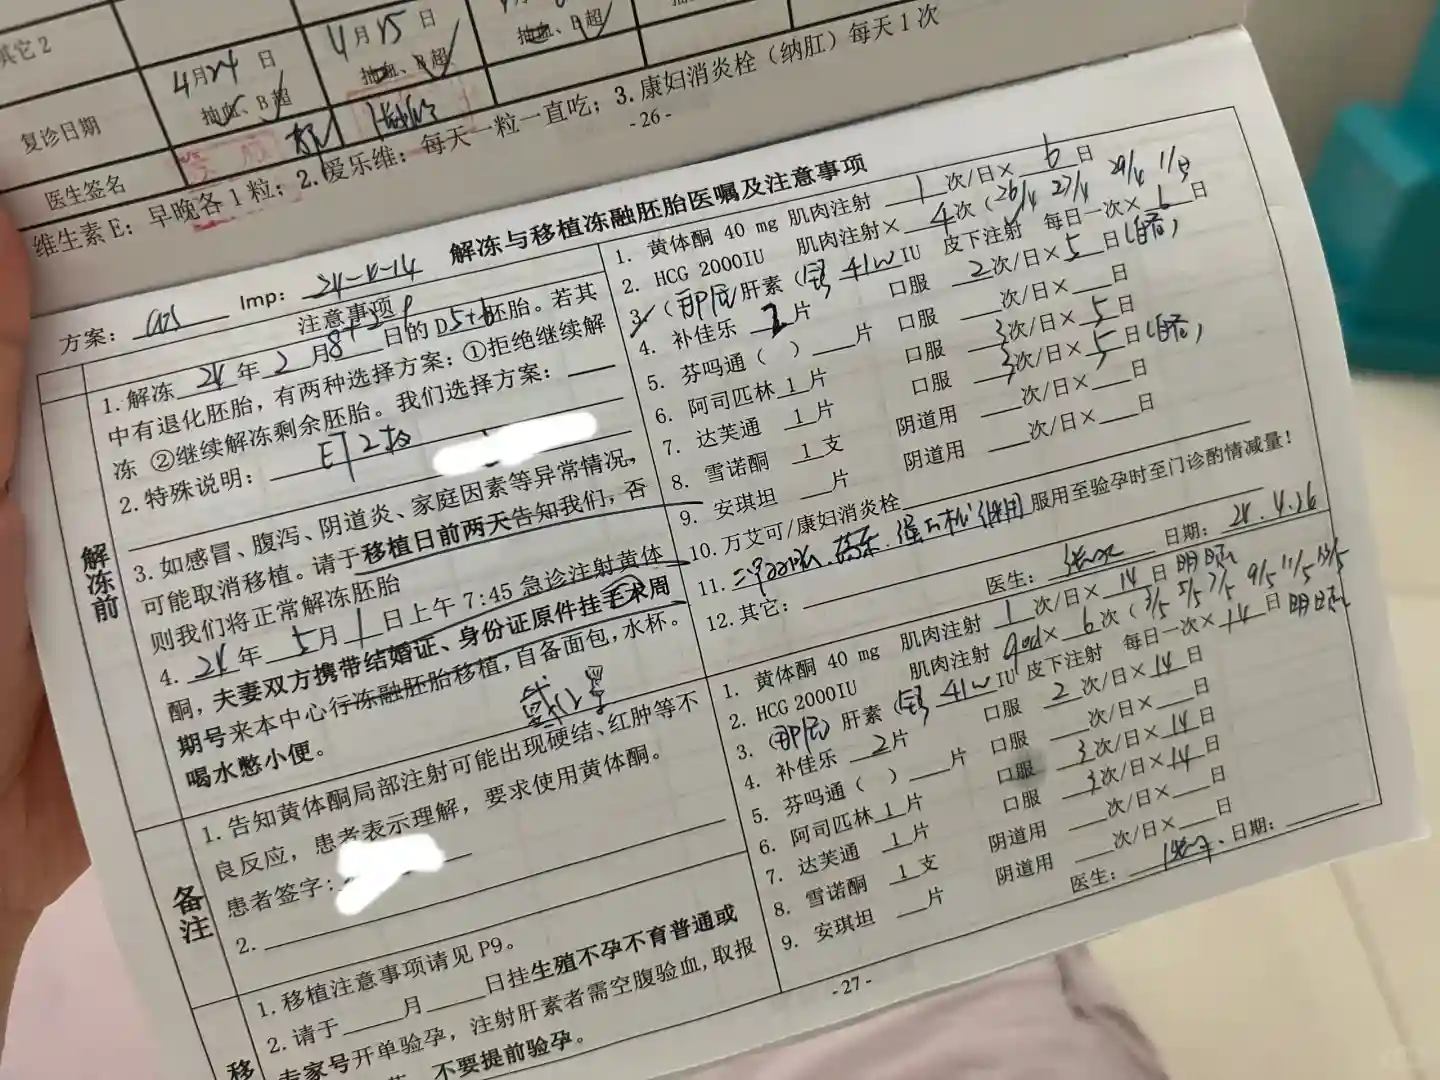 其它2
复诊日期
4月24日
抽血、B超
4月15日
抽血、B超
抽血、B超
医生签名
维生素E：早晚各1粒；2.爱乐维：每天一粒一直吃；3.康妇消炎栓（纳肛）每天1次
-26-
解冻与移植冻融胚胎医嘱及注意事项
方案：
Imp：
注意事项
解冻前
1.解冻 24 年 2 月 日的 D5+6 胚胎。若其
中有退化胚胎，有两种选择方案；①拒绝继续解
冻 ②继续解冻剩余胚胎。我们选择方案：
2.特殊说明：ET2枚
3.如感冒、腹泻、阴道炎、家庭因素等异常情况，
可能取消移植。请于移植日前两天告知我们，否
则我们将正常解冻胚胎
4. 24 年 5 月 1 日上午 7:45 急诊注射黄体
酮，夫妻双方携带结婚证、身份证原件挂毛求周
期号来本中心行冻融胚胎移植，自备面包，水杯。
喝水憋小便。
备注
1.告知黄体酮局部注射可能出现硬结、红肿等不
良反应，患者表示理解，要求使用黄体酮。
患者签字：
2.
移
1.移植注意事项请见 P9。
2.请于 月 日挂生殖不孕不育普通或
专家号开单验孕，注射肝素者需空腹验血，取报
不要提前验孕。
1. 黄体酮 40 mg 肌肉注射 1 次/日× 6 日
2. HCG 2000IU 肌肉注射× 4 次（26/4 27/4 29/4 1/5
3. 肝素（ 41W IU 皮下注射 每日一次× 6 日
4. 补佳乐 2 片 口服 2 次/日× 5 日
5. 芬吗通（ ） 片 口服 次/日× 日
6. 阿司匹林 1 片 口服 3 次/日× 5 日
7. 达芙通 1 片 口服 3 次/日× 5 日
8. 雪诺酮 1 支 阴道用 次/日× 日
9. 安琪坦 片 阴道用 次/日× 日
10. 万艾可/康妇消炎栓
11. 服用至验孕时至门诊酌情减量！
12. 其它：
医生： 日期：24.4.26
1. 黄体酮 40 mg 肌肉注射 1 次/日× 14 日 明起
2. HCG 2000IU 肌肉注射 qod× 6 次（3/5 5/5 7/5 9/5 11/5 13/5
3. 肝素（ 41W IU 皮下注射 每日一次× 14 日 明起
4. 补佳乐 2 片 口服 2 次/日× 14 日
5. 芬吗通（ ） 片 口服 次/日× 日
6. 阿司匹林 1 片 口服 3 次/日× 14 日
7. 达芙通 1 片 口服 3 次/日× 14 日
8. 雪诺酮 1 支 阴道用 次/日× 日
9. 安琪坦 片 阴道用 次/日× 日
医生： 日期：
-27-